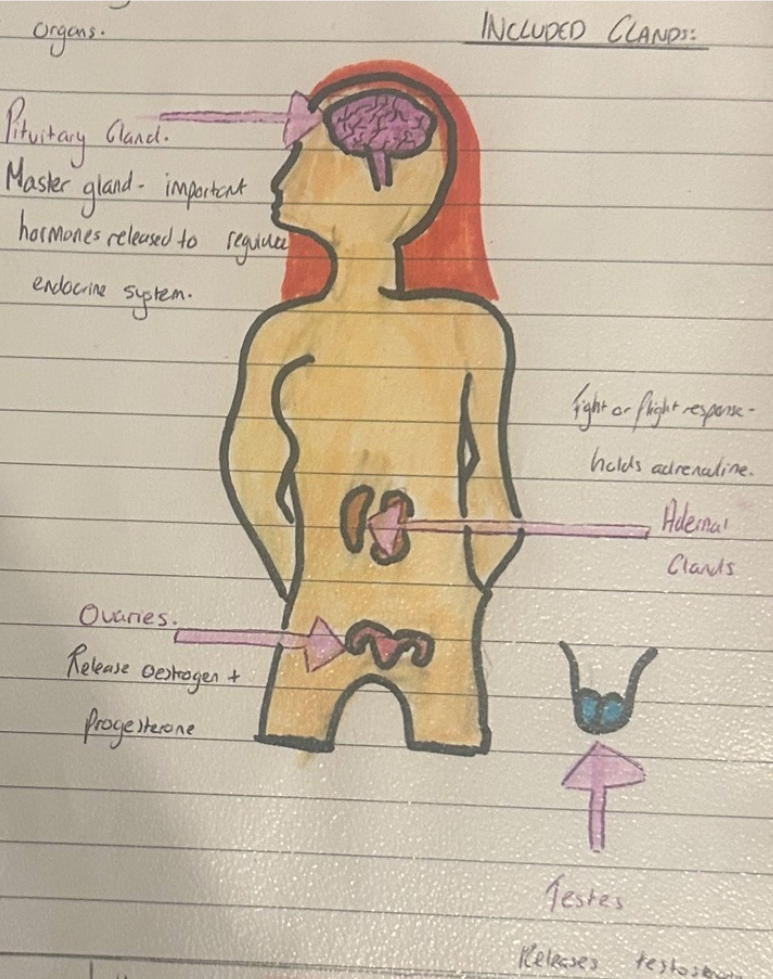 organs.
INCLUDED GLANDS:
Pituitary Gland.
Master gland - important
hormones released to regulate
endocrine system.
Fight or flight response -
holds adrenaline.
Adernal
Glands
Ovaries.
Release oestrogen +
Progesterone
Testes
Releases